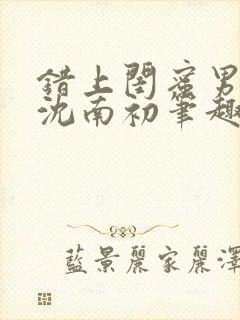 錯上閨蜜男
沈南初筆趣
藍景麗家麗澤